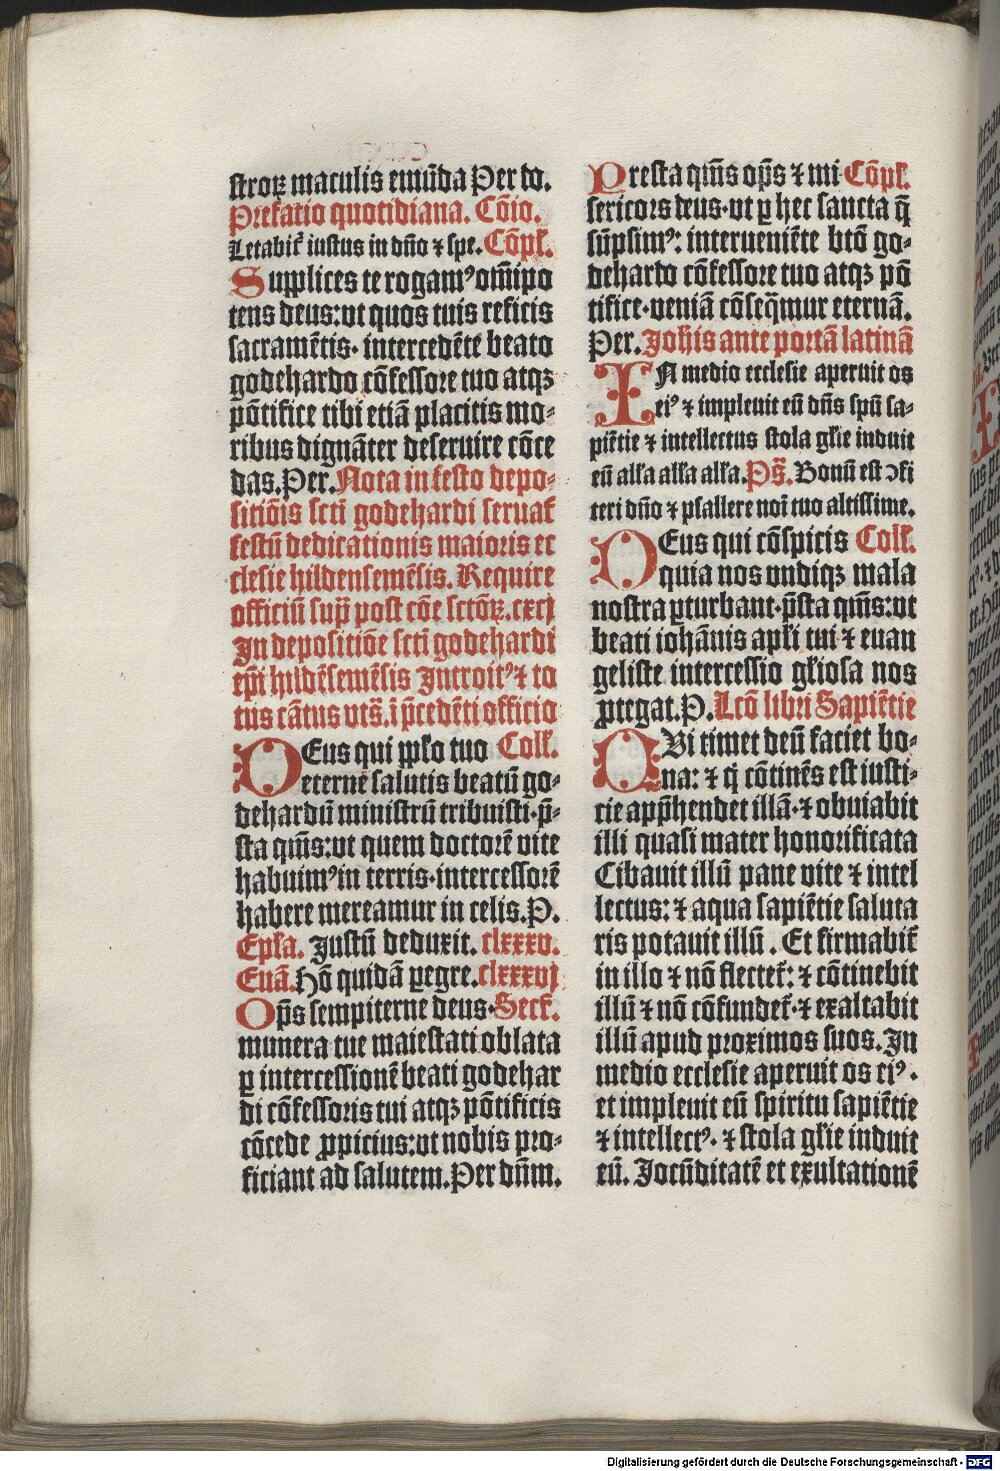 stroꝝ maculis emūda Per do.
Prefatio quotidiana. Cōio.
Letabit᷑ iustus in dño ⁊ spe. Cōpl̄.
Supplices te rogamꝰ om̄ipo
tens deus: vt quos tuis reficis
sacramētis· intercedēte beato
godehardo cōfessore tuo atqꝫ
pōtifice tibi etiā placitis mo⸗
ribus dignāter deseruire cōce
das. Per. Nota in festo depo⸗
sitiōis scti godehardi seruat᷑
festū dedicationis maioris ec
clesie hildensemēsis. Require
officiū sup̄ post cōe sctōꝝ. cxcj
In depositiōe scti godehardi
ep̄i hildēsemēsis Introitꝰ ⁊ to
tus cātus vts̄. ī p̄cedēti officio
DEus qui pp̄lo tuo Coll̄.
eterne salutis beatū go⸗
dehardū ministrū tribuisti· p̄⸗
sta qm̄s: vt quem doctorē vite
habuimꝰ in terris· intercessorē
habere mereamur in celis. P.
Epl̄a. Justū deduxit. clxxxv.
Euā. Hō quidā ꝑegre. clxxxvj
Op̄s sempiterne deus· Secr̄.
munera tue maiestati oblata
ꝑ intercessionē beati godehar
di cōfessoris tui atqꝫ pōtificis
cōcede ꝓpicius: vt nobis pro⸗
ficiant ad salutem. Per dn̄m.
Presta qm̄s op̄s ⁊ mi Cōpl̄.
sericors deus· vt ꝑ hec sancta q̄
sūpsimꝰ: interueniēte btō go⸗
dehardo cōfessore tuo atqꝫ pō
tifice· veniā cōseq̄mur eternā.
Per. Joh̄is ante portā latinā
IN medio ecclesie aperuit os
eiꝰ ⁊ impleuit eū dn̄s spū sa⸗
piētie ⁊ intellectus stola gl̄ie induit
eū all̄a all̄a all̄a. Ps̄. Bonū est ↄfi
teri dño ⁊ psallere noī tuo altissime.
DEus qui cōspicis Coll̄.
quia nos vndiqꝫ mala
nostra ꝑturbant· p̄sta qm̄s: vt
beati iohānis apl̄i tui ⁊ euan
geliste intercessio gl̄iosa nos
ꝓtegat. P. Lcō libri Sapiētie
QVi timet deū faciet bo⸗
na: ⁊ q̇ cōtinēs est iusti⸗
cie app̄hendet illā· ⁊ obuiabit
illi quasi mater honorificata
Cibauit illū pane vite ⁊ intel
lectus: ⁊ aqua sapiētie saluta
ris potauit illū. Et firmabit᷑
in illo ⁊ nō flectet᷑: ⁊ cōtinebit
illū ⁊ nō cōfundet᷑· ⁊ exaltabit
illū apud proximos suos. In
medio ecclesie aperuit os eiꝰ·
et impleuit eū spiritu sapiētie
⁊ intellectꝰ· ⁊ stola gl̄ie induit
eū. Jocūditatē et exultationē
Digitalisierung gefördert durch die Deutsche Forschungsgemeinschaft - DFG